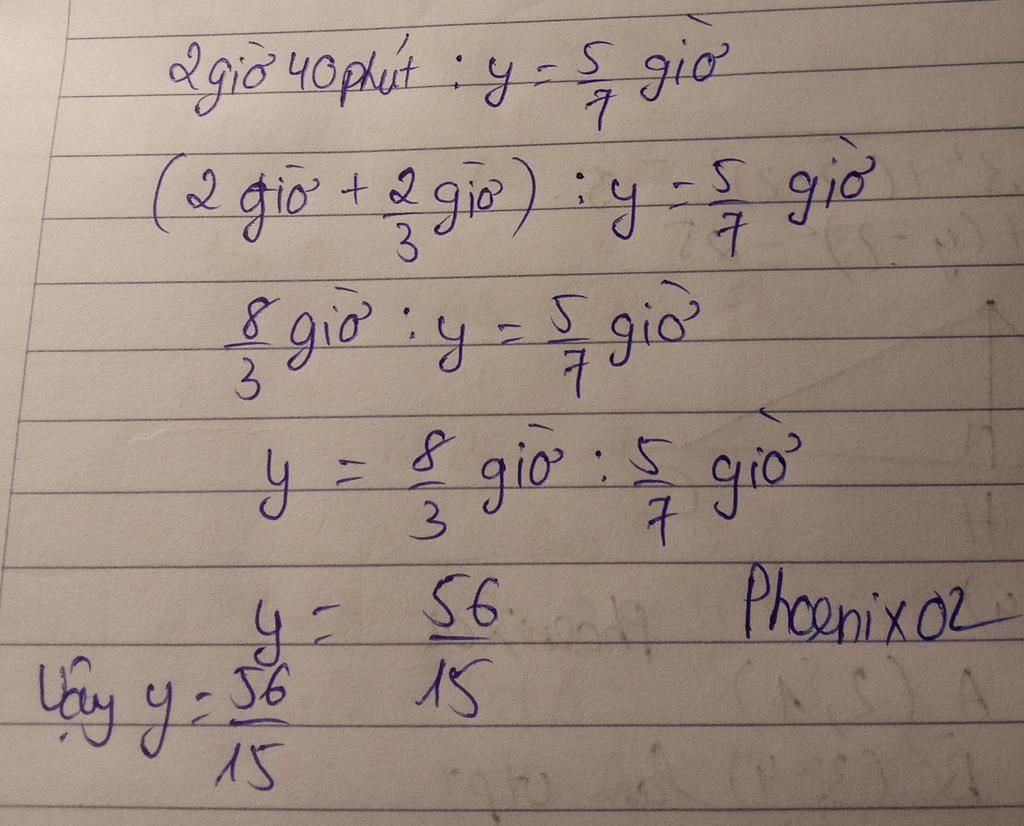 2 giờ 40 phút : y = 5/7 giờ
(2 giờ + 2/3 giờ) : y = 5/7 giờ
8/3 giờ : y = 5/7 giờ
y = 8/3 giờ : 5/7 giờ
y = 56/15
Phoenix02
Vậy y = 56/15